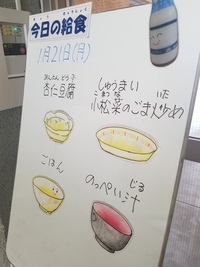 きょう きゅうしょく
今日の給食
1月21日(月)
あんにんどうふ
杏仁豆腐
しゅうまい
こまつな いた
小松菜のごま炒め
ごはん
じる
のっぺい汁